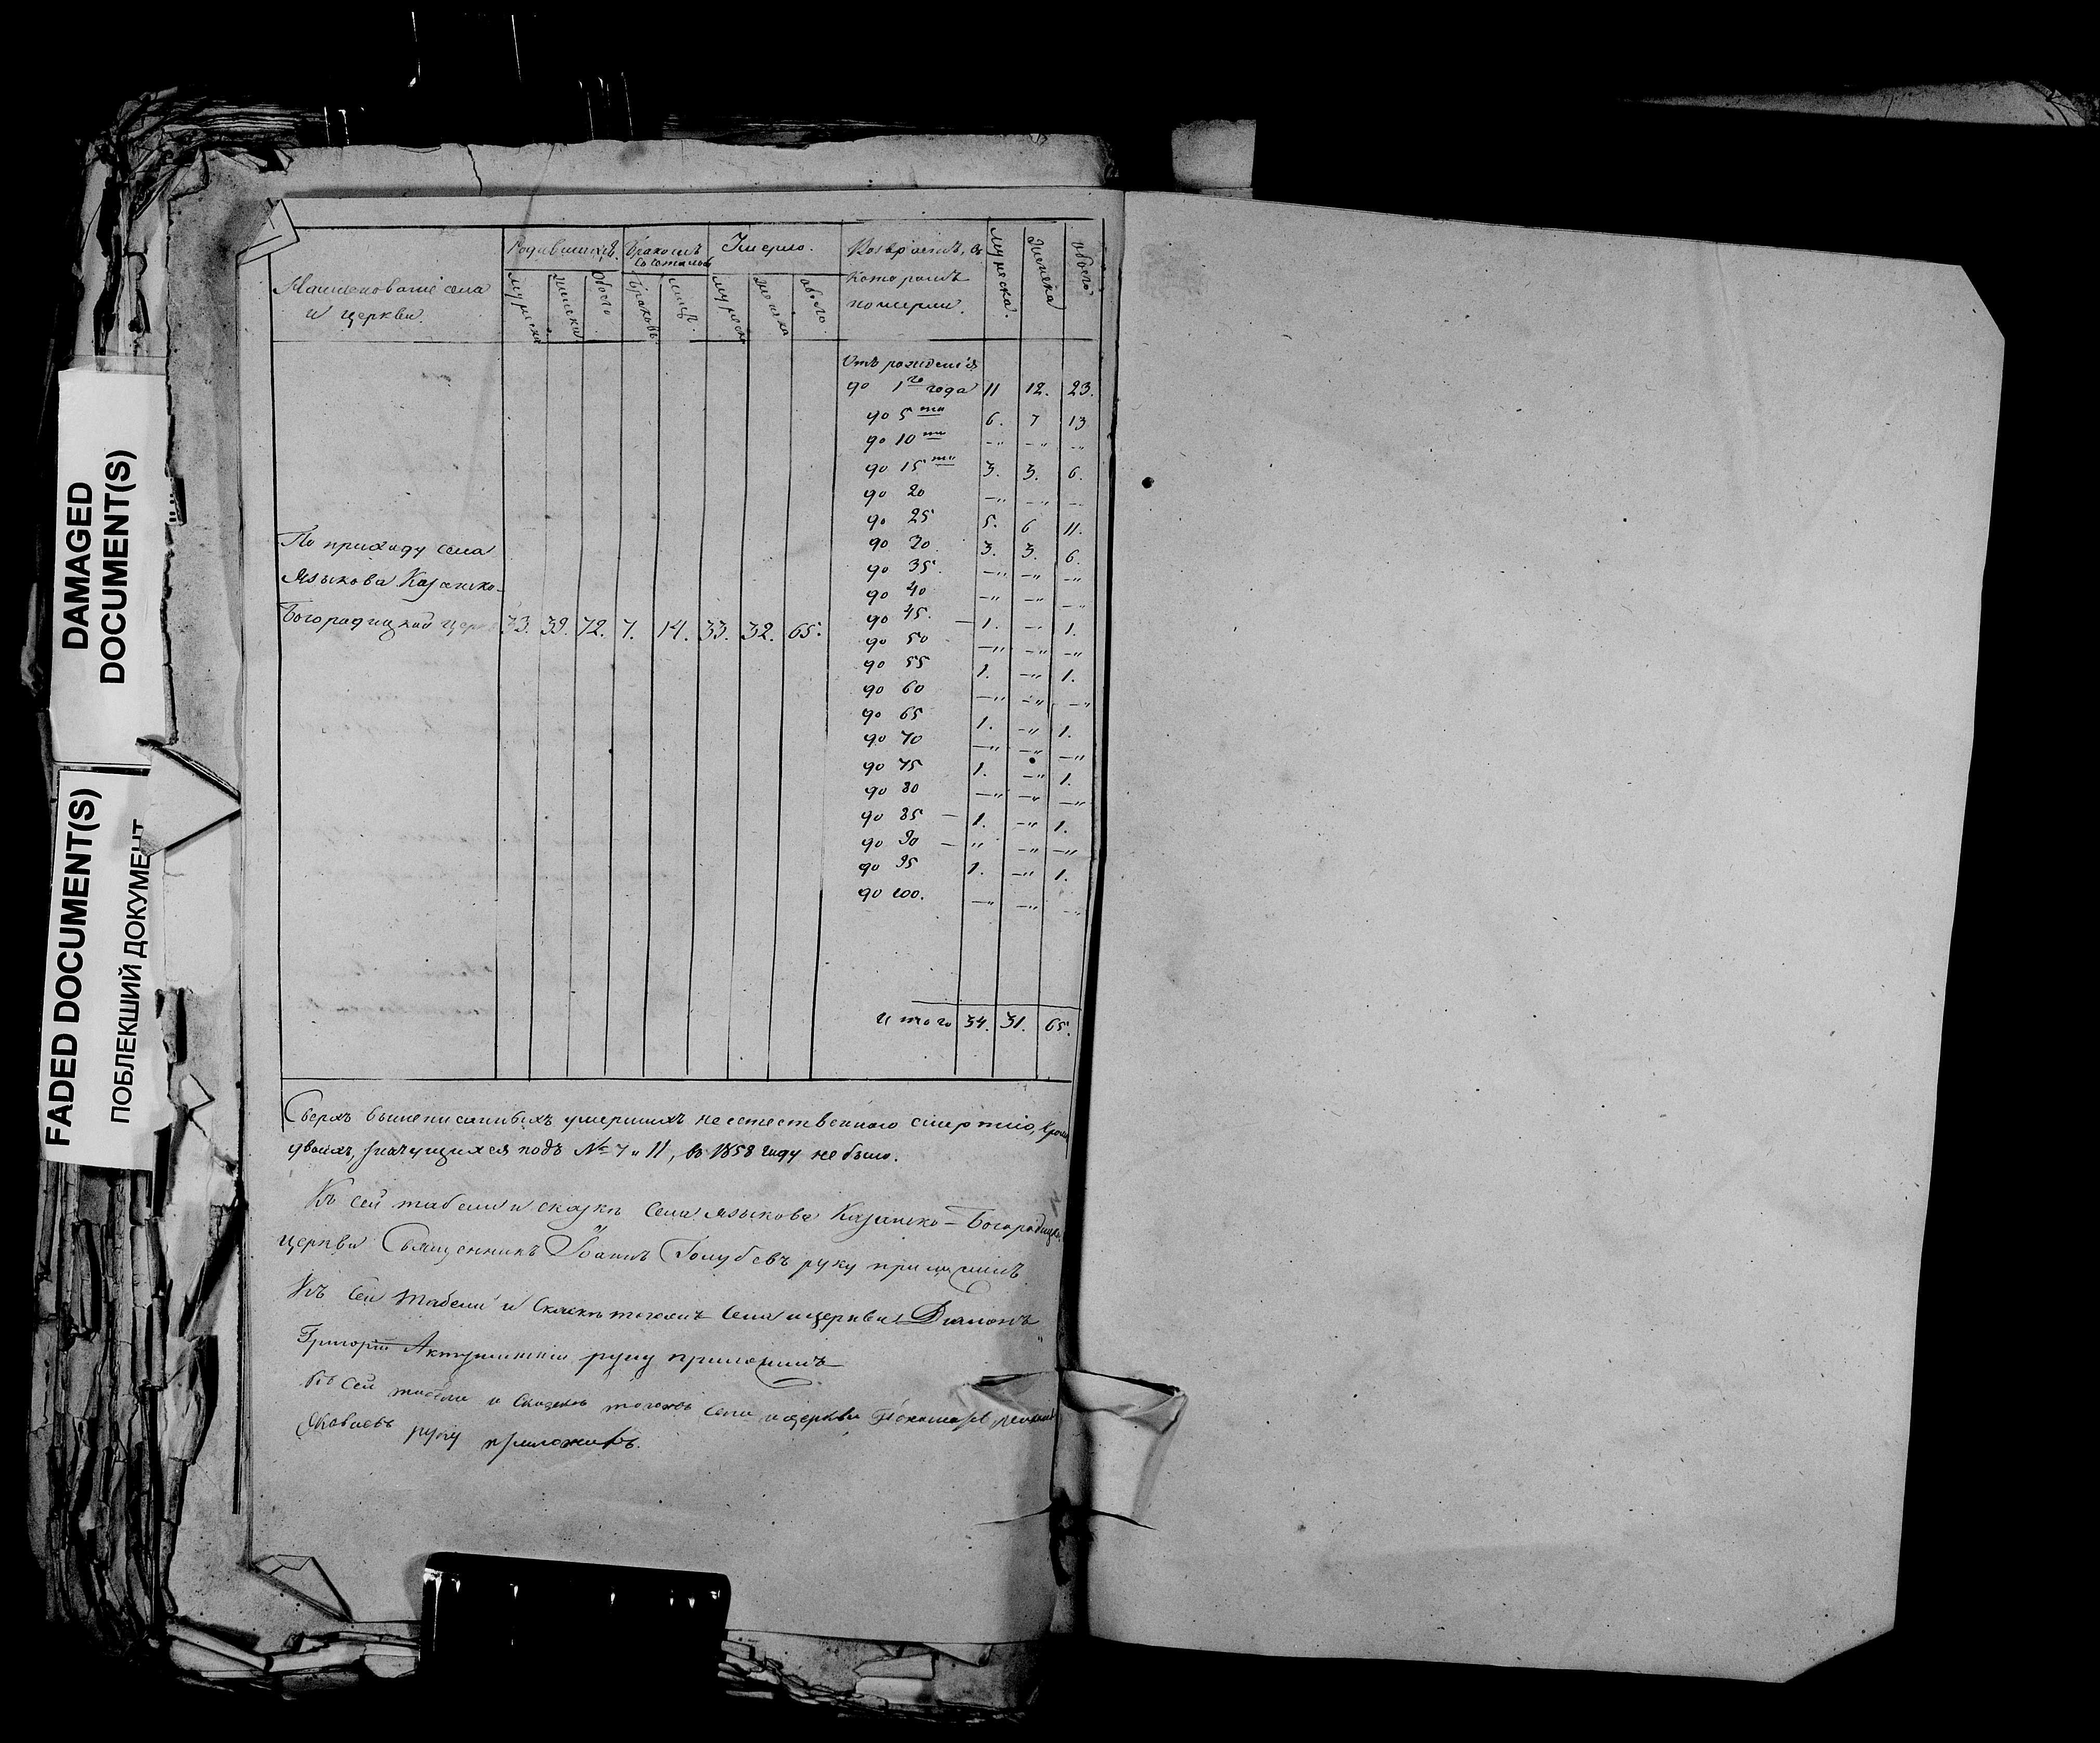 DAMAGED
DOCUMENT(S)
FADED DOCUMENT(S)
ПОБЛЕКШИЙ ДОКУМЕНТ
Наименованіе села
и церкви.
Родившихся.
Бракомъ
Сочеталось
Умерло.
Возврастъ, въ
которомъ
померли.
Мужеска.
Женска
обоего
Мужеска
Женска
Обоего
Браковъ.
лицъ.
Мужеска
Женска
обоего.
Отъ рожденія
до 1го года 11 12. 23.
до 5ти 6. 7 13
до 10ти -„ -„ -„
до 15ти 3. 3. 6.
до 20 -„ -„ -
до 25 5. 6 11.
до 30. 3. 3. 6
до 35. -„ -„ -„
до 40 -„ -„ -„
до 45. - 1. - 1.
до 50 -„ -„ -„
до 55 1. -„ 1.
до 60 -„ -„ -„
до 65 1. -„ 1.
до 70 -„ -„ -„
до 75 1. -„ 1.
до 80 -„ -„ -„
до 85 - 1. -„ 1.
до 90 - „ -„ -„
до 95 1. -„ 1.
до 100. -„ -„ -„
По приходу села
Языкова Казанско-
Богородицкой церк 33. 39. 72. 7. 14. 33. 32. 65.
Итого 34. 31. 65.
Сверхъ вышеписанныхъ умершихъ неестественною смертію, кроме
двоихъ, значущихся подъ № 7 и 11, въ 1858 году не было.
Къ сей табели и сказкѣ села Языкова Казанско-Богородицко
церкви Священникъ Іоаннъ Голубевъ руку приложилъ.
Къ сей табели и Сказкѣ тогожъ Села и церкви Діаконъ
Григорій руку приложилъ
Къ сей табели и Сказкѣ тогожъ Села и церкви Пономарь
Яковлевъ руку приложилъ.